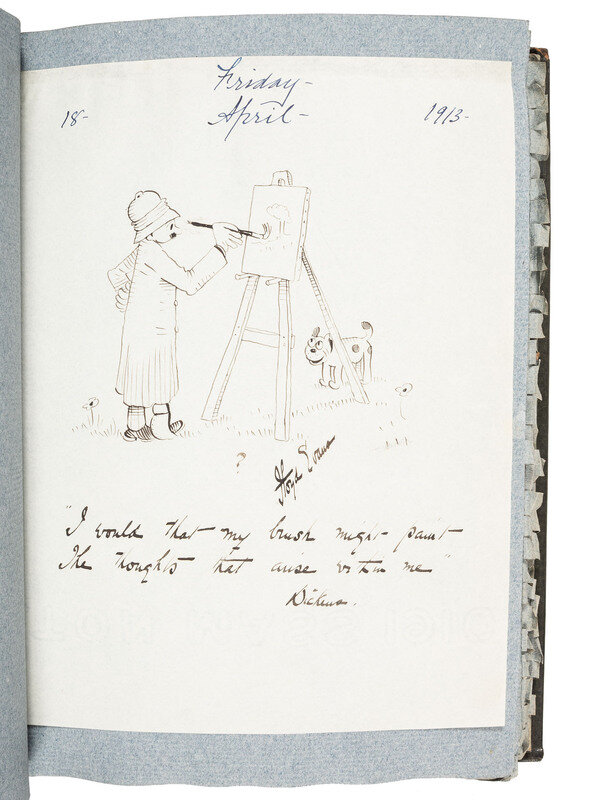 Friday-
18- April- 1913-
?
Floyd Evans
"I would that my brush might paint
The thoughts that arise within me"
Dickens.